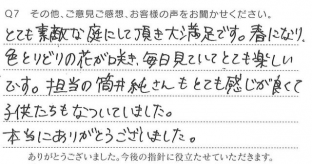 Q7 その他、ご意見ご感想、お客様の声をお聞かせください。
とても素敵な庭にして頂き大満足です。春になり、
色とりどりの花がさき、毎日見ていてとても楽しい
です。担当の筒井純さんもとても感じが良くて
子供たちもなついていました。
本当にありがとうございました。
ありがとうございました。今後の指針に役立たせていただきます。